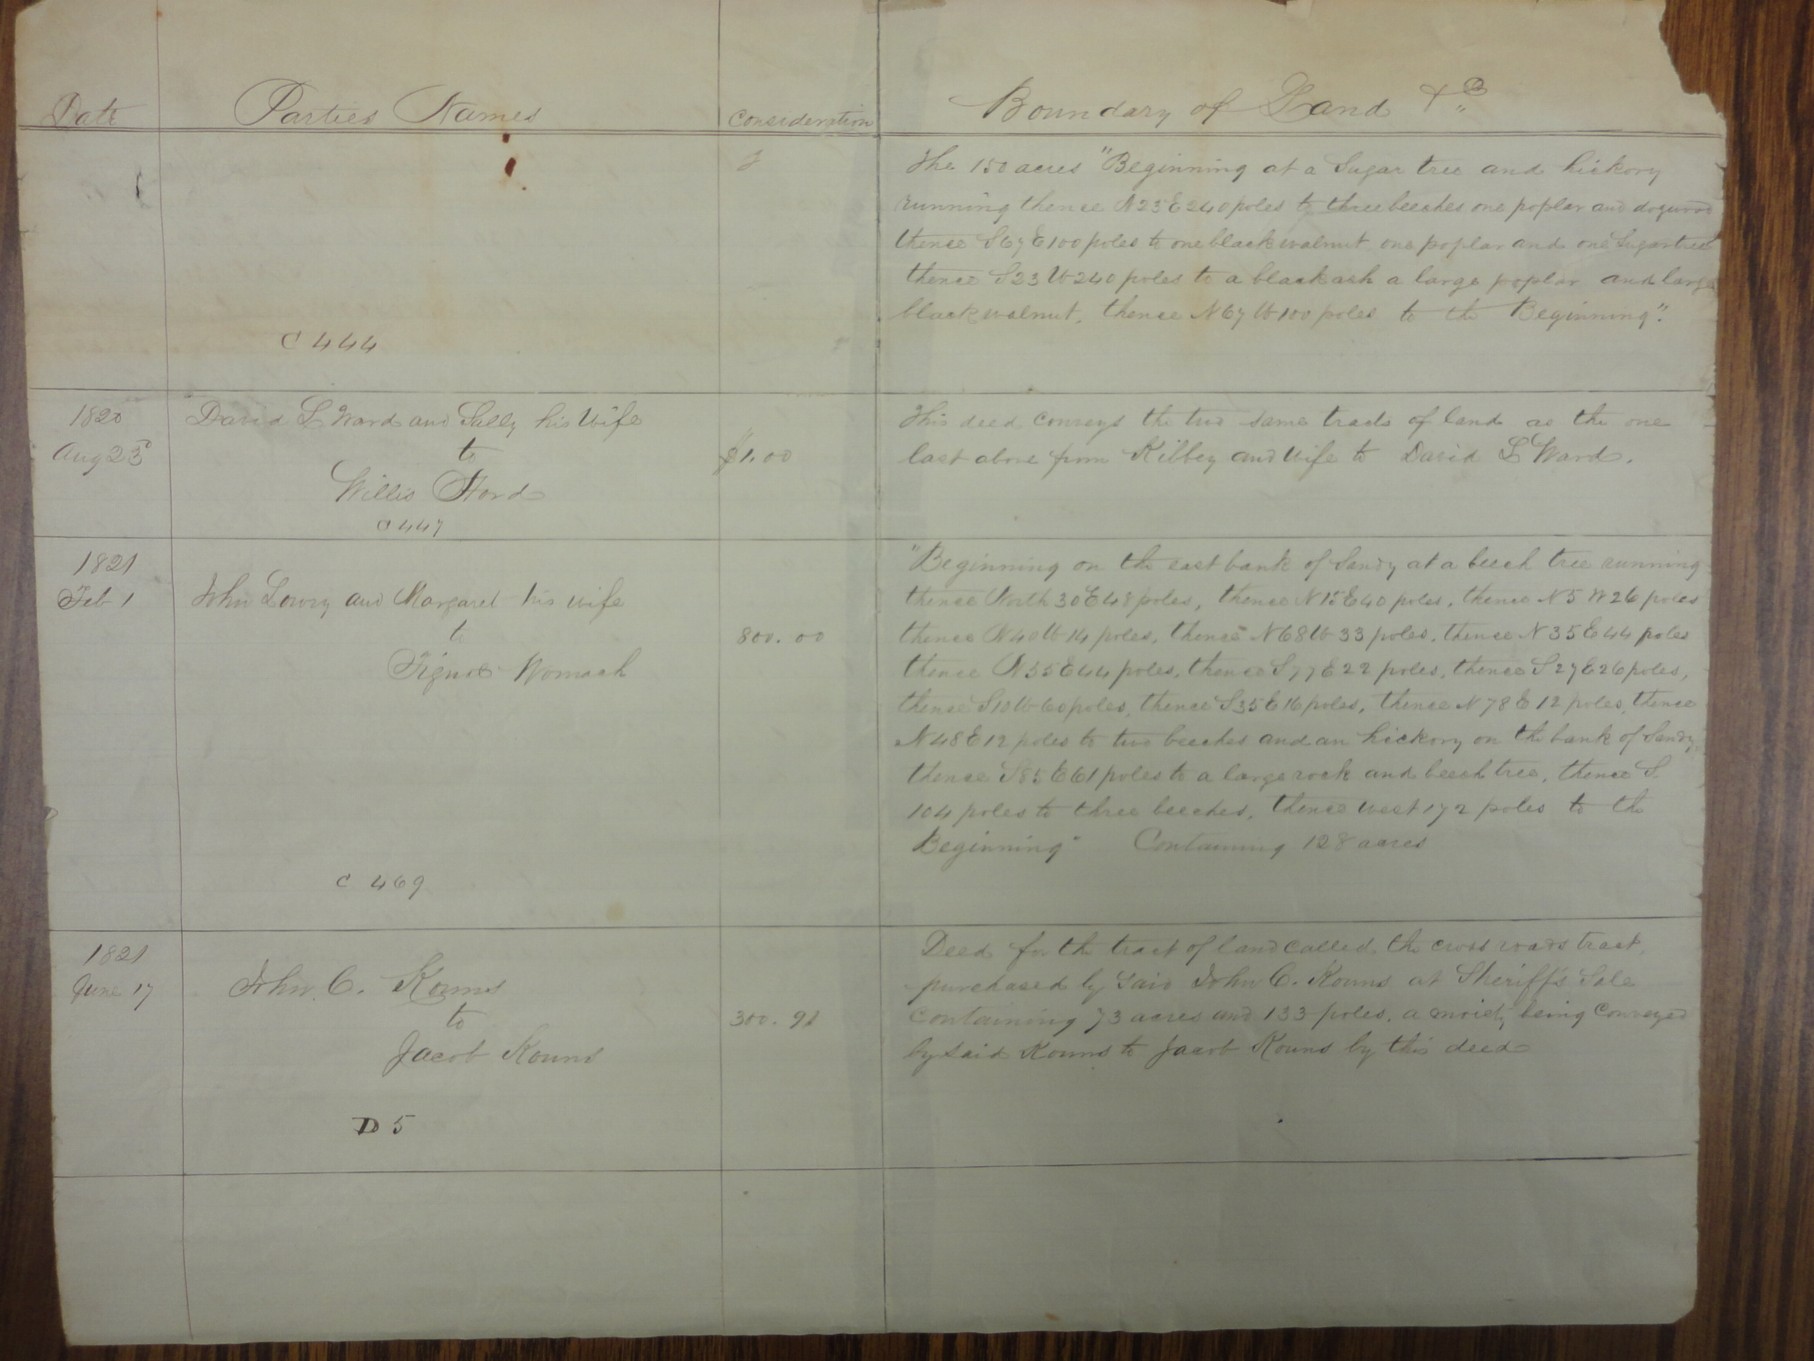 Date Parties Names Consideration Boundary of Land &c
The 150 acres "Beginning at a Sugar tree and hickory
running thence N23E240 poles to three beeches one poplar and dogwood
thence S67E100 poles to one black walnut one poplar and one Sugartree
thence S23W240 poles to a black ash a large poplar and large
black walnut, thence N67W100 poles to the Beginning".
C 444
1820
Aug 23
David L Ward and Sally his Wife
to
Willis Ford
C 447
$1.00
This deed conveys the two same tracts of land as the one
last above from Kibbey and Wife to David L Ward.
1821
Feb 1
John Lowry and Margaret his wife
to
Womack
C 469
800.00
"Beginning on the east bank of Sandy at a beech tree running
thence North 30E48 poles, thence N15E40 poles, thence N5W26 poles
thence N40W14 poles, thence N68W33 poles, thence N35E44 poles
thence N35E44 poles, thence S77E22 poles, thence S27E26 poles,
thence S10W60 poles, thence S35E16 poles, thence N78E12 poles, thence
N48E12 poles to two beeches and an hickory on the bank of Sandy,
thence S85E61 poles to a large rock and beech tree, thence S
104 poles to three beeches, thence west 172 poles to the
Beginning" Containing 128 acres
1821
June 17
John C. Kouns
to
Jacob Kouns
D 5
300.91
Deed for the tract of land called the cross roads tract,
purchased by said John C. Kouns at Sheriff's Sale
containing 73 acres and 133 poles, a moiety being conveyed
by said Kouns to Jacob Kouns by this deed